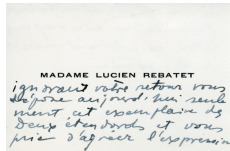 MADAME LUCIEN REBATET
ignorant votre retour vous
dépose aujourd'hui seule
ment cet exemplaire des
Deux étendards et vous
prie d'agréer l'expression